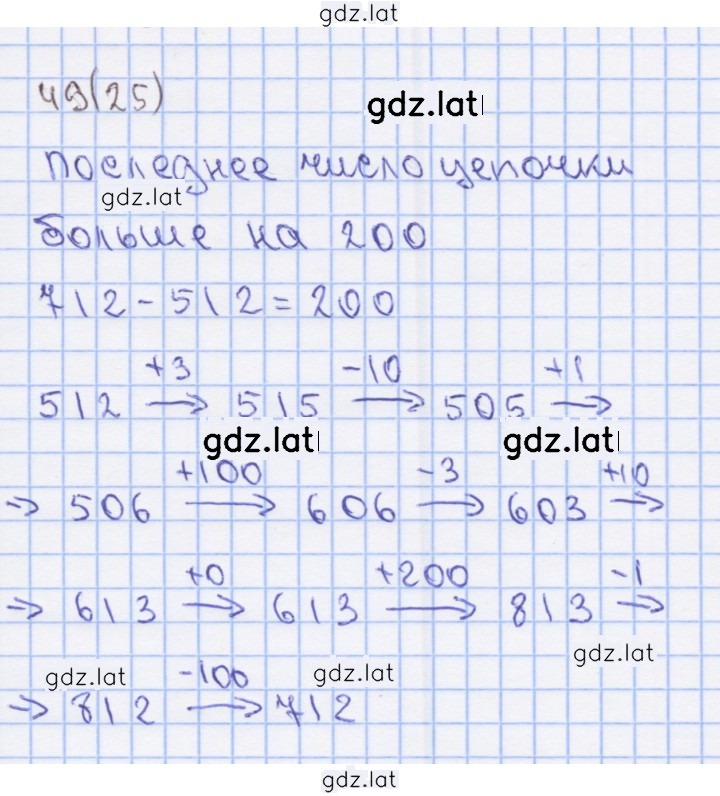 gdz.lat
49(25)
gdz.lat
последнее число цепочки
gdz.lat
больше на 200
712 - 512 = 200
+3 -10 +1
512 → 515 → 505 →
gdz.lat gdz.lat
+100 -3 +10
→ 506 → 606 → 603 →
+0 +200 -1
→ 613 → 613 → 813 →
gdz.lat
gdz.lat -100 gdz.lat
→ 812 → 712
gdz.lat